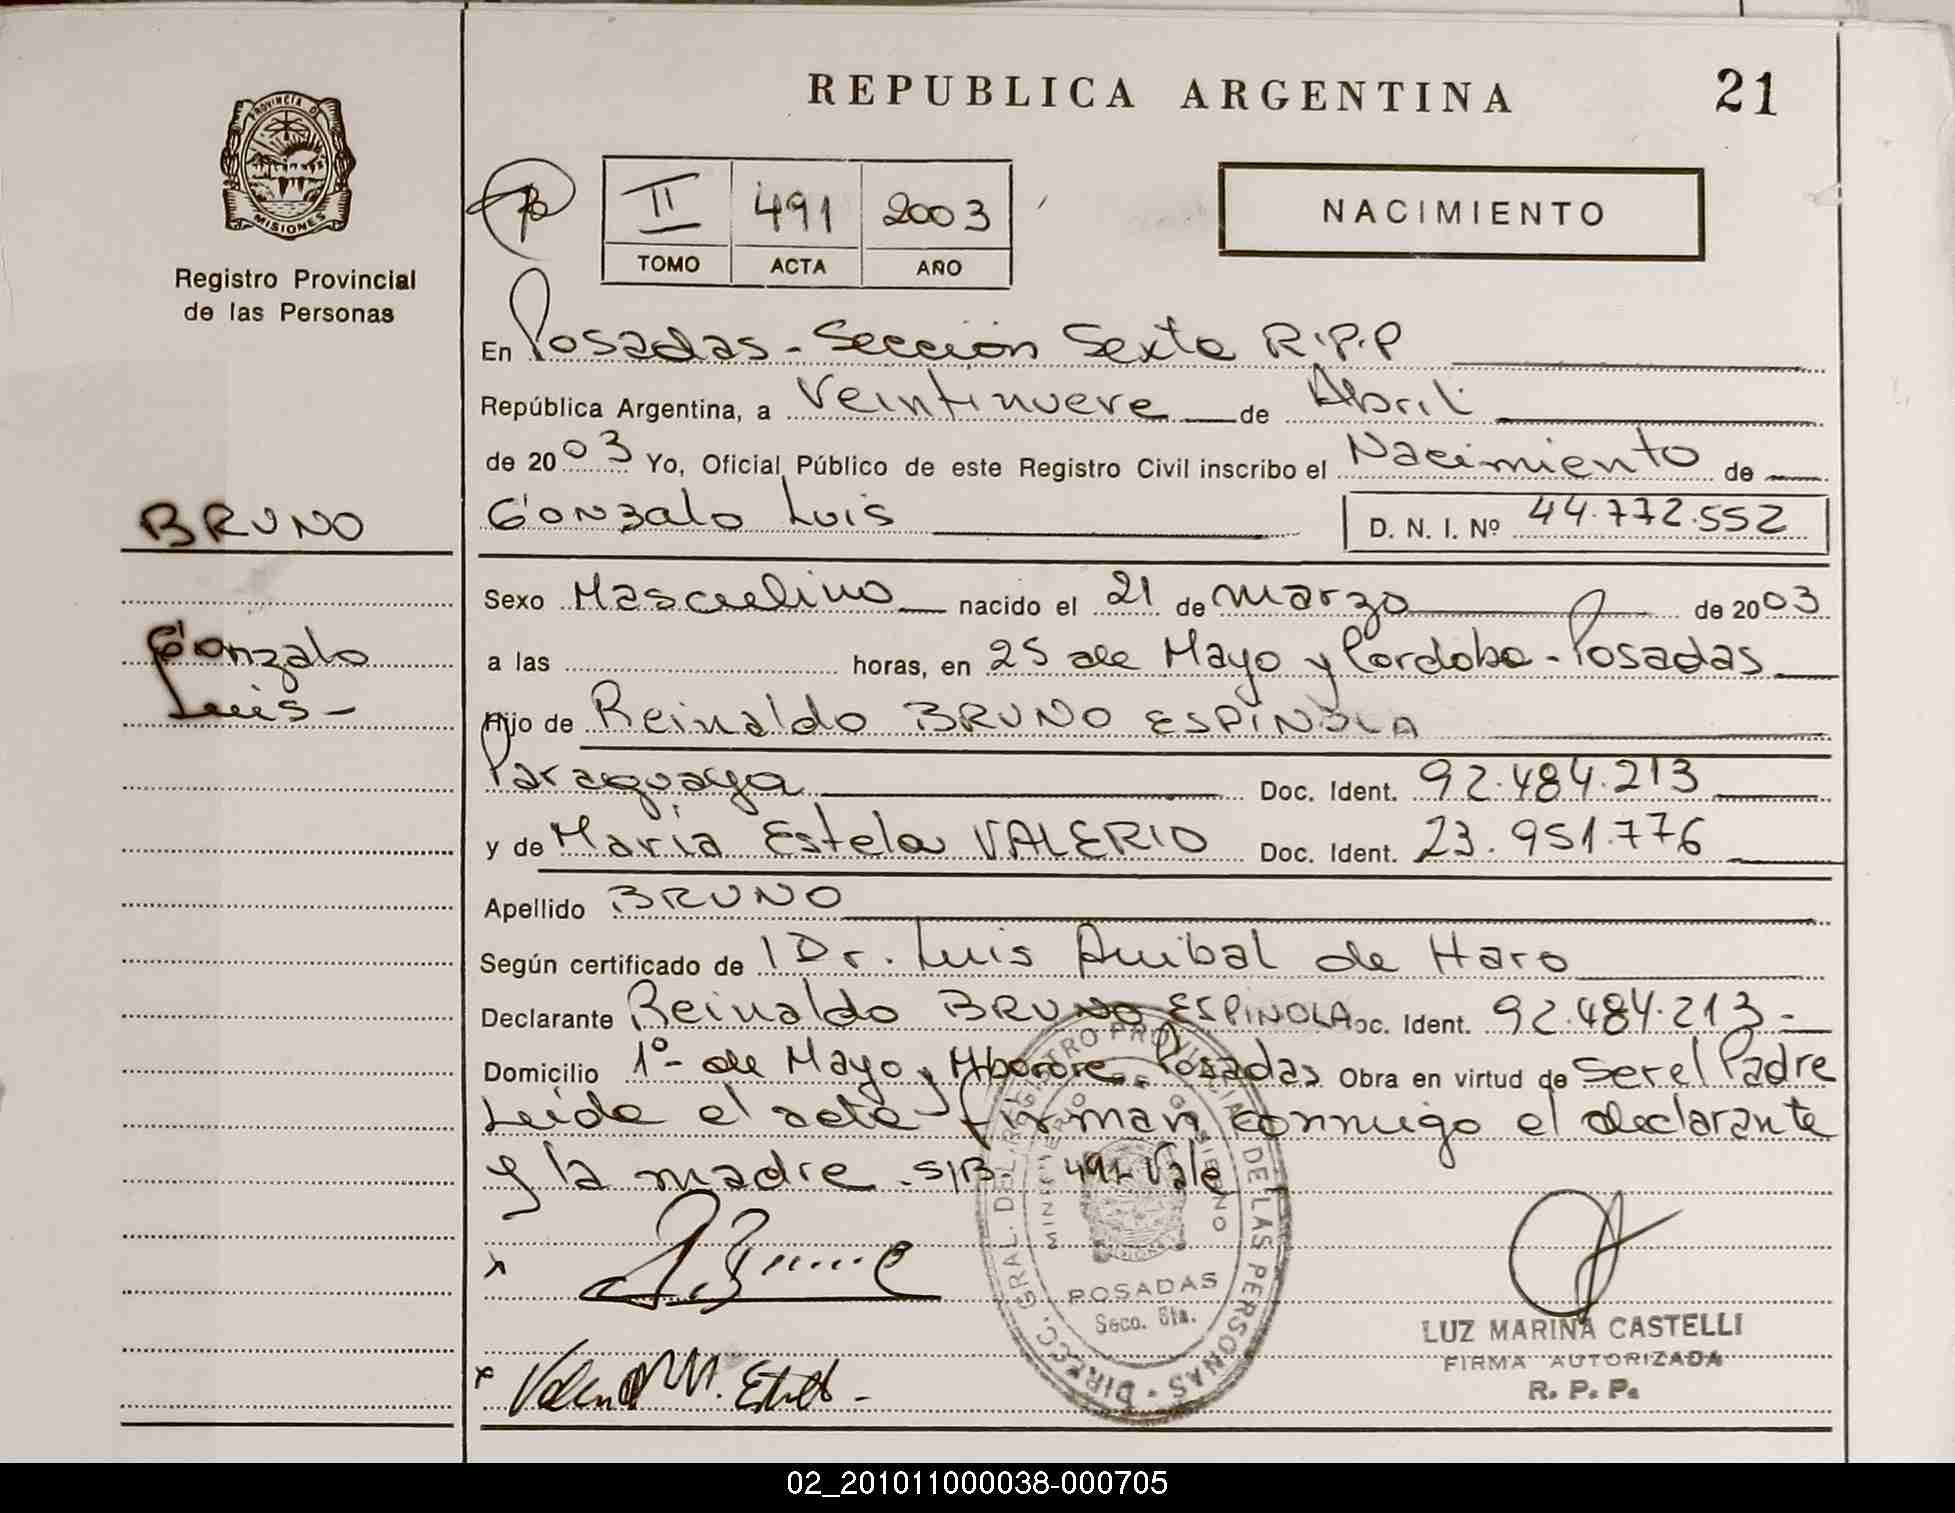 REPUBLICA ARGENTINA
21
PROVINCIA DE
MISIONES
Registro Provincial
de las Personas
II 491 2003
TOMO ACTA AÑO
NACIMIENTO
En Posadas - Sección Sexta R.P.P
República Argentina, a Veintinueve de Abril
de 2003 Yo, Oficial Público de este Registro Civil inscribo el Nacimiento de
BRUNO
Gonzalo Luis D. N. I. Nº 44.772.552
Sexo Masculino nacido el 21 de marzo de 2003
Gonzalo
Luis -
a las horas, en 25 de Mayo y Cordoba - Posadas
Hijo de Reinaldo BRUNO ESPINOLA
Paraguaya Doc. Ident. 92.484.213
y de María Estela VALERIO Doc. Ident. 23.951.776
Apellido BRUNO
Según certificado de Dr. Luis Anibal de Haro
Declarante Reinaldo BRUNO ESPINOLA oc. Ident. 92.484.213 -
Domicilio 1º de Mayo y Aborore - Posadas Obra en virtud de Ser el Padre
Leida el acta firman conmigo el declarante
y la madre . S/B 491 Vale
DIRECC. GRAL. DEL REGISTRO PROVINCIAL DE LAS PERSONAS
MINISTERIO DE GOBIERNO
POSADAS
Secc. 6ta.
LUZ MARINA CASTELLI
FIRMA AUTORIZADA
R. P. P.
02_201011000038-000705